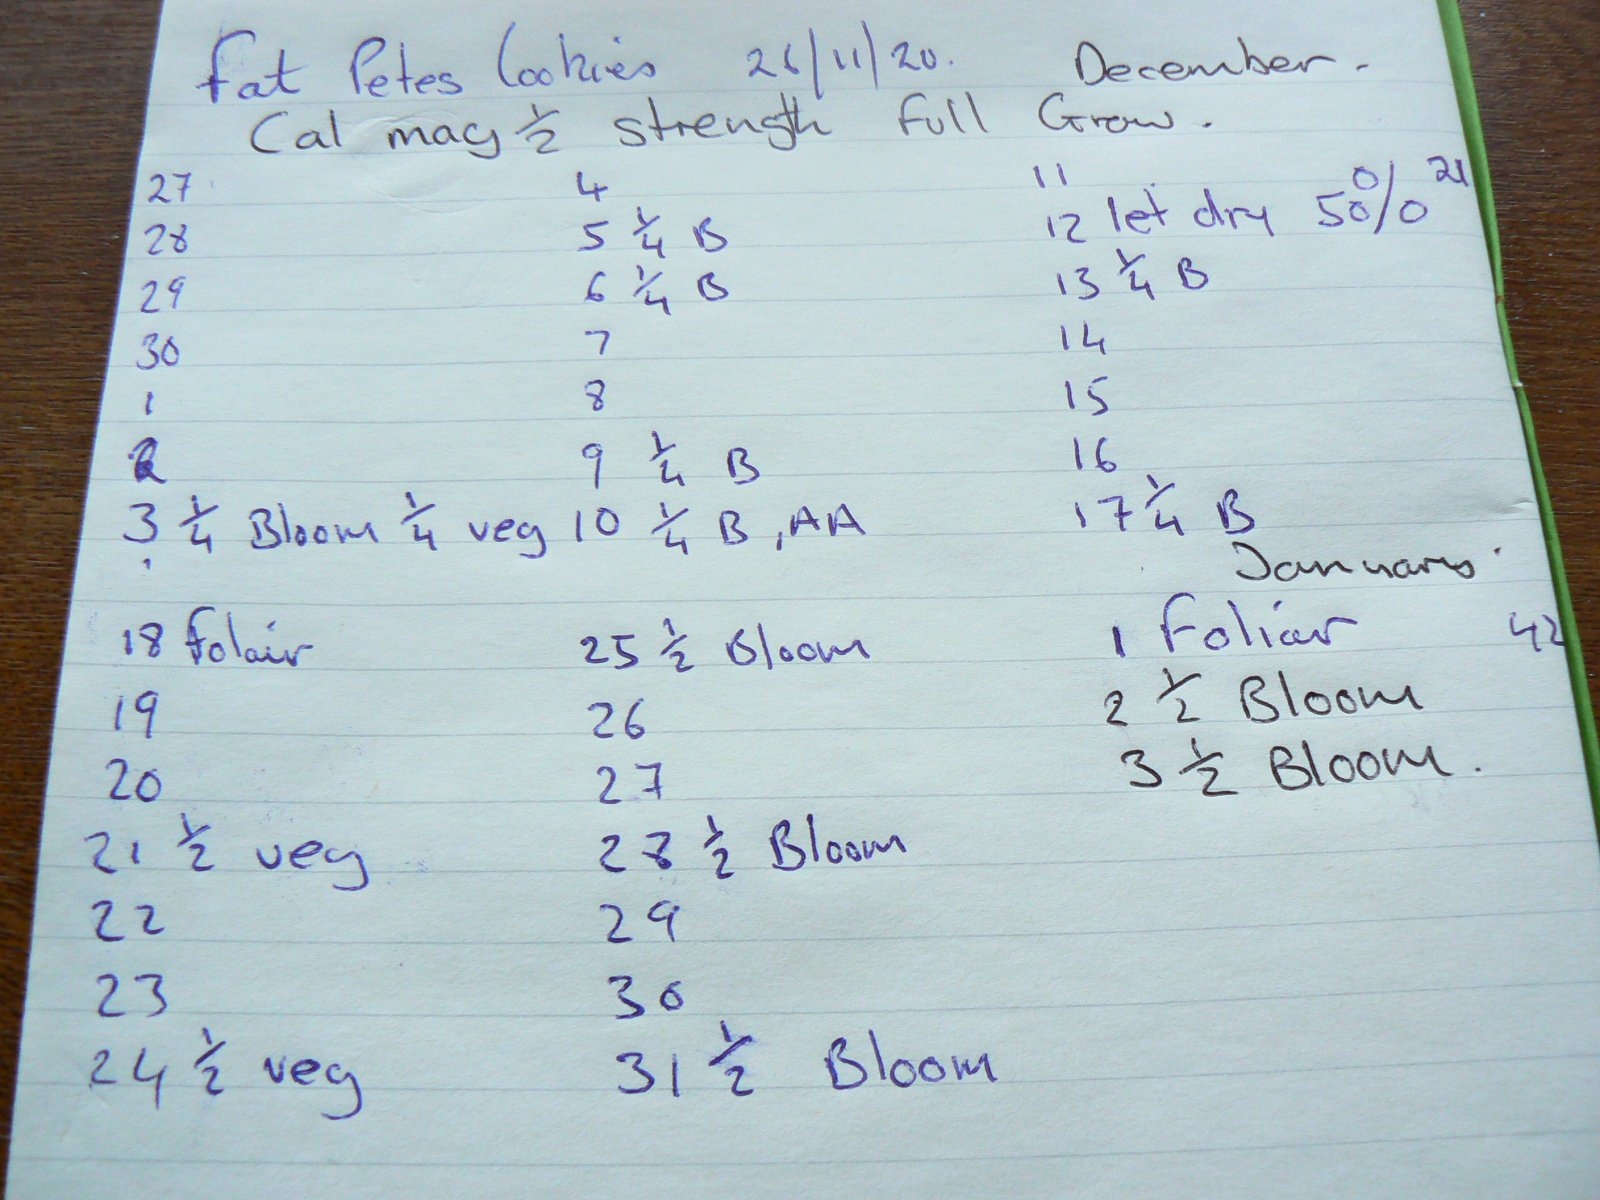 Fat Petes Cookies 26/11/20. December.
Cal mag 1/2 strength Full Grow.
27 4 11
28 5 1/4 B 12 let dry 50% 21
29 6 1/4 B 13 1/4 B
30 7 14
1 8 15
2 9 1/4 B 16
3 1/4 Bloom 1/4 veg 10 1/4 B, AA 17 1/4 B
January
18 folair 25 1/2 Bloom 1 Foliar 42
19 26 2 1/2 Bloom
20 27 3 1/2 Bloom.
21 1/2 veg 28 1/2 Bloom
22 29
23 30
24 1/2 veg 31 1/2 Bloom